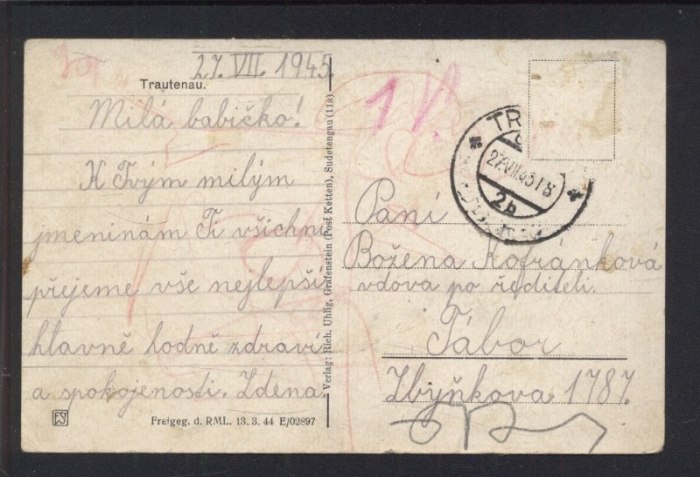 27. VII. 1945
Trautenau.
Milá babičko!
K Tvým milým
jmeninám Ti všichni
přejeme vše nejlepší
hlavně hodně zdraví
a spokojenosti. Zdena.
Freigeg. d. RML. 13. 3. 44 E/02897
Verlag: Rich. Uhlig, Grafenstein (Post Ketten), Sudetengau (11a)
TR
27.VII.45 15
2b
Paní
Božena Kofránková
vdova po řediteli.
Tábor
Zbyňkova 1787.